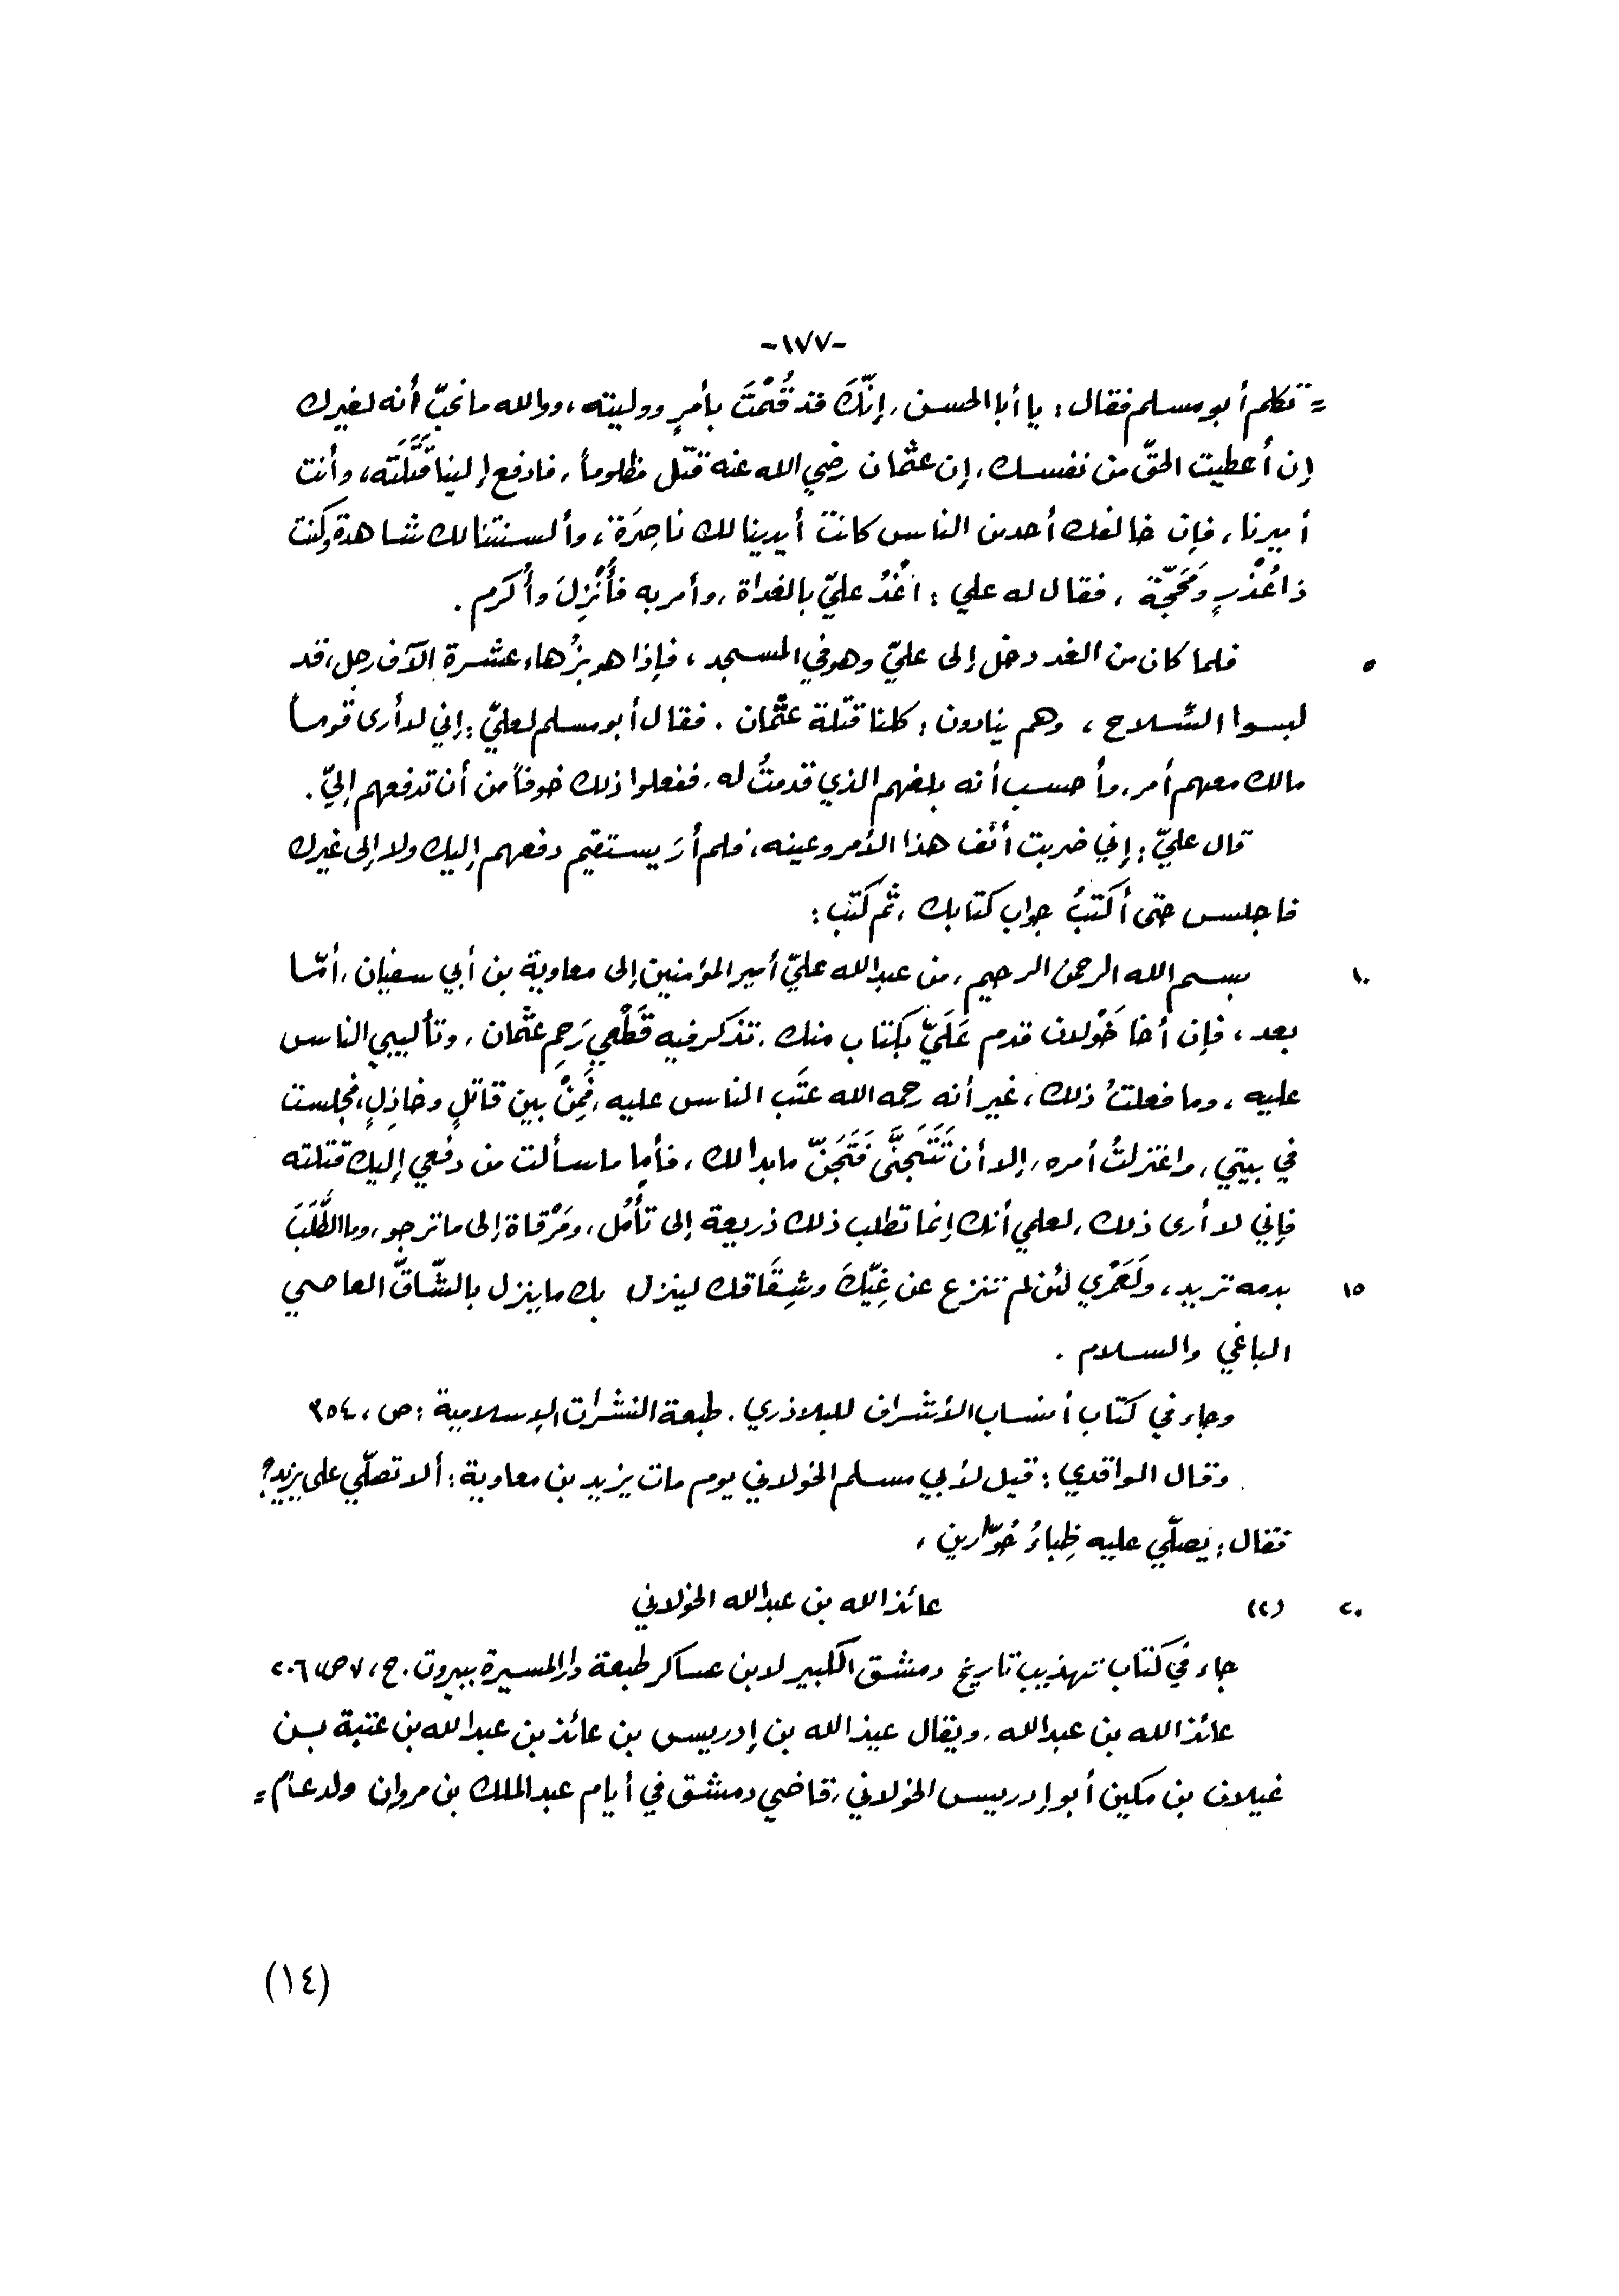 -١٧٧-
= تكلم أبو مسلم فقال: يا أبا الحسن، إنّكَ قد قُمْتَ بأمرٍ ووليته، ووالله ما نحبّ أنه لغيرك
إن أعطيت الحقّ من نفسك، إن عثمان رضي الله عنه قتل مظلوماً، فادفع إلينا قَتَلَتَه، وأنت
أميرنا، فإن خالفك أحد من الناس كانت أيدينا لك ناصِرَة، وألسنتنا لك شاهدة وكنت
ذا عُذْرٍ وَحَجَّة، فقال له علي: اغْدُ عليّ بالغداة، وأمر به فأُنْزِلَ وأُكرم.
٥ فلما كان من الغد دخل إلى عليّ وهو في المسجد، فإذا هو بزُهاء عشرة الآف رجل، قد
لبسوا السّلاح، وهم ينادون: كلنا قتلة عثمان. فقال أبو مسلم لعليّ: إني لدأرى قوماً
مالك معهم أمر، وأحسب أنه بلغهم الذي قدمتُ له، ففعلوا ذلك خوفاً من أن تدفعهم إليّ.
قال عليّ: إني ضربت أنف هذا الأمر وعينه، فلم أرَ يستقيم دفعهم إليك ولا إلى غيرك
فاجلس حتى أكتبُ جواب كتابك، ثم كتب:
١٠ بسم الله الرحمن الرحيم، من عبدالله عليّ أمير المؤمنين إلى معاوية بن أبي سفيان، أمّا
بعد، فإن أخا خَوْلان قدم عَلَيّ بكتاب منك، تذكر فيه قَطْعي رَحِم عثمان، وتأليبي الناس
عليه، وما فعلتُ ذلك، غير أنه رحمه الله عتَب الناس عليه، فَمِنْ بين قاتلٍ وخاذِلٍ، فجلست
في بيتي، واعتزلتُ أمره، إلا أن تَتَجَنَّى فَتَجَنّ ما بدا لك، فأما ما سألت من دفعي إليك قتلته
فإني لا أرى ذلك، لعلمي أنك إنما تطلب ذلك ذريعة إلى تأمُل، ومَرْقاة إلى ما ترجو، وما الطَّلَبَ
١٥ بدمه تريد، ولَعَمْري لئن لم تنزع عن غِيّكَ وشِقَاقك لينزل بك ما ينزل بالشّاقّ العاصي
الباغي والسلام.
وجاء في كتاب أنساب الأشراف للبلاذري. طبعة النشرات الإسلامية: ص، ٣٥٤
وقال الواقدي: قيل لأبي مسلم الخولاني يوم مات يزيد بن معاوية: ألا تصلّي على يزيد؟
فقال: يصلّي عليه ظِباءُ حُوّارين،
٢٠ (٢) عائذ الله بن عبدالله الخولاني
جاء في كتاب تهذيب تاريخ دمشق الكبير لابن عساكر طبعة دار المسيرة ببيروت. ج، ٧ ص، ٢٠٦
عائذ الله بن عبدالله، ويقال عيذ الله بن إدريس بن عائذ بن عبدالله بن عتبة بن
غيلان بن مكين أبو إدريس الخولاني، قاضي دمشق في أيام عبد الملك بن مروان ولد عام =
(١٤)